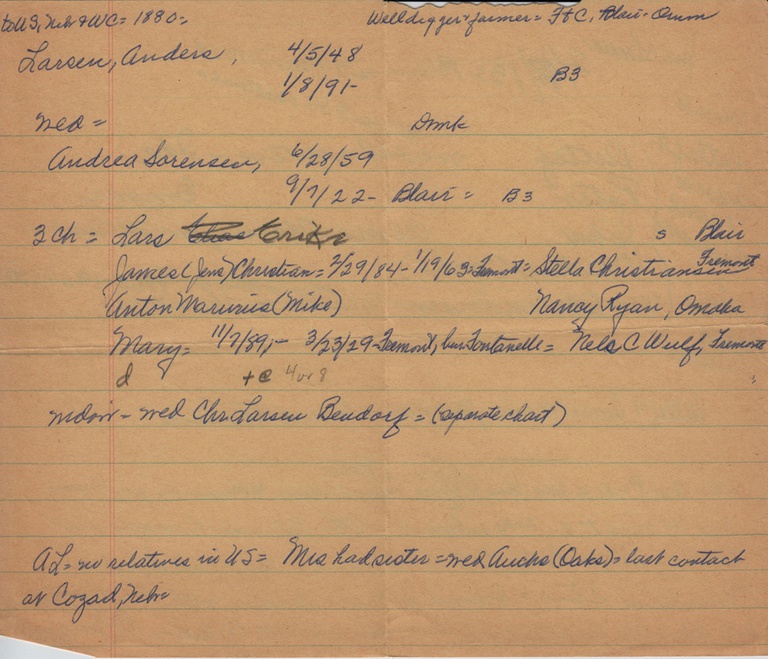 to US, Nebr & WC = 1880 = Welldigger & farmer = Ft C, Blair - Orum
Larsen, Anders, 4/5/48
1/8/91- B3
wed = Dmk
Andrea Sorensen, 6/28/59
9/7/22- Blair = B3
3 ch = Lars Erik s Blair
James (Jens) Christian = 2/29/84 - 1/19/63 = Fremont = Stella Christiansen Fremont
Anton Maruius (Mike) Nancy Ryan, Omaha
Mary = 11/7/89, - 3/23/29 - Fremont, bur Fontanelle = Nels C Wulf, Fremont
d + @ 4 or 8
widow - wed Chr Larsen Bendorf = (separate chart)
AL = no relatives in US = Mrs had sister = wed Auchs (Oaks) = last contact
at Cozad, Nebr